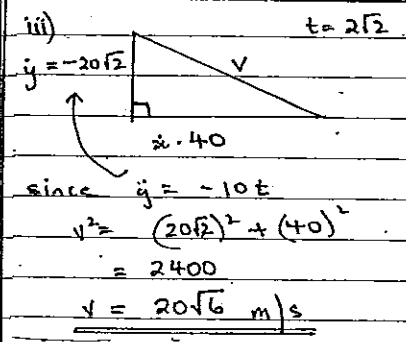 iii)
t = 2√2
ẏ = -20√2
V
ẋ. 40
since ẏ = -10t
v² = (20√2)² + (40)²
= 2400
v = 20√6 m|s